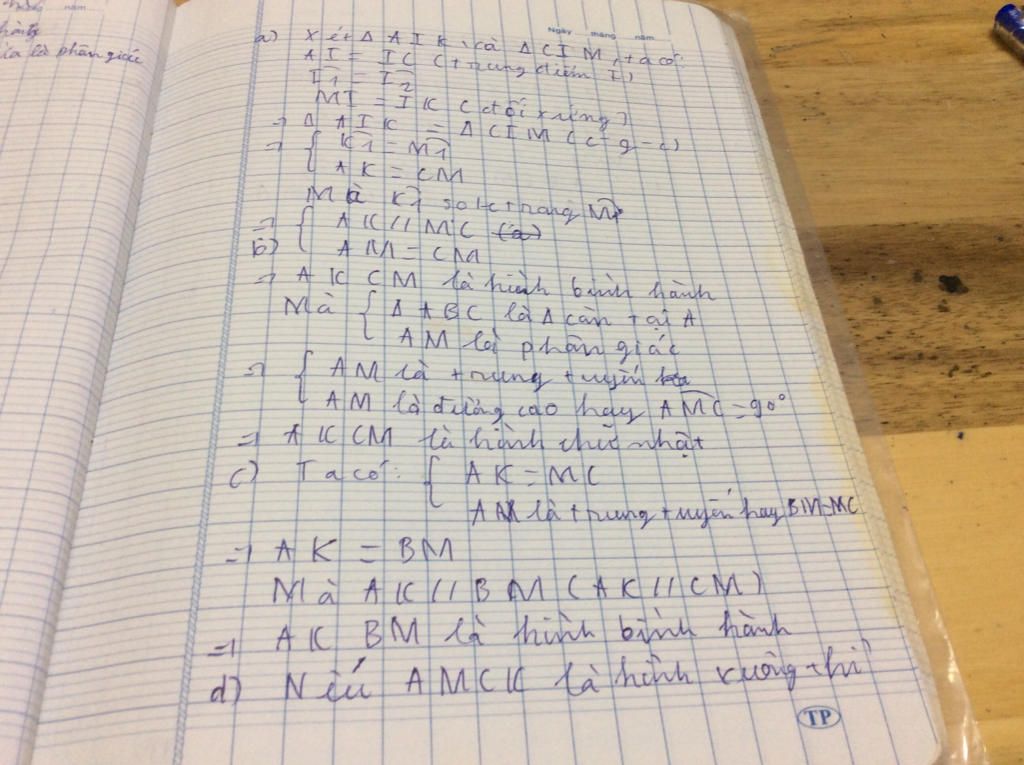 hàng
là phân giác
Ngày tháng năm
a) Xét Δ AIK và Δ CIM, ta có:
AI = IC (trung điểm I)
I1 = I2
MI = IK (đối xứng)
⇒ Δ AIK = Δ CIM (c-g-c)
⇒ { K1 = M1
AK = CM
Mà K1 so le trong M1
⇒ { AK // MC (a)
b) AM = CM
⇒ AKCM là hình bình hành
Mà { Δ ABC là Δ cân tại A
AM là phân giác
⇒ { AM là trung tuyến
AM là đường cao hay AMC = 90°
⇒ AKCM là hình chữ nhật
c) Ta có: { AK = MC
AM là trung tuyến hay BM=MC
⇒ AK = BM
Mà AK // BM (AK // CM)
⇒ AKBM là hình bình hành
d) Nếu AMCK là hình vuông thì
TP